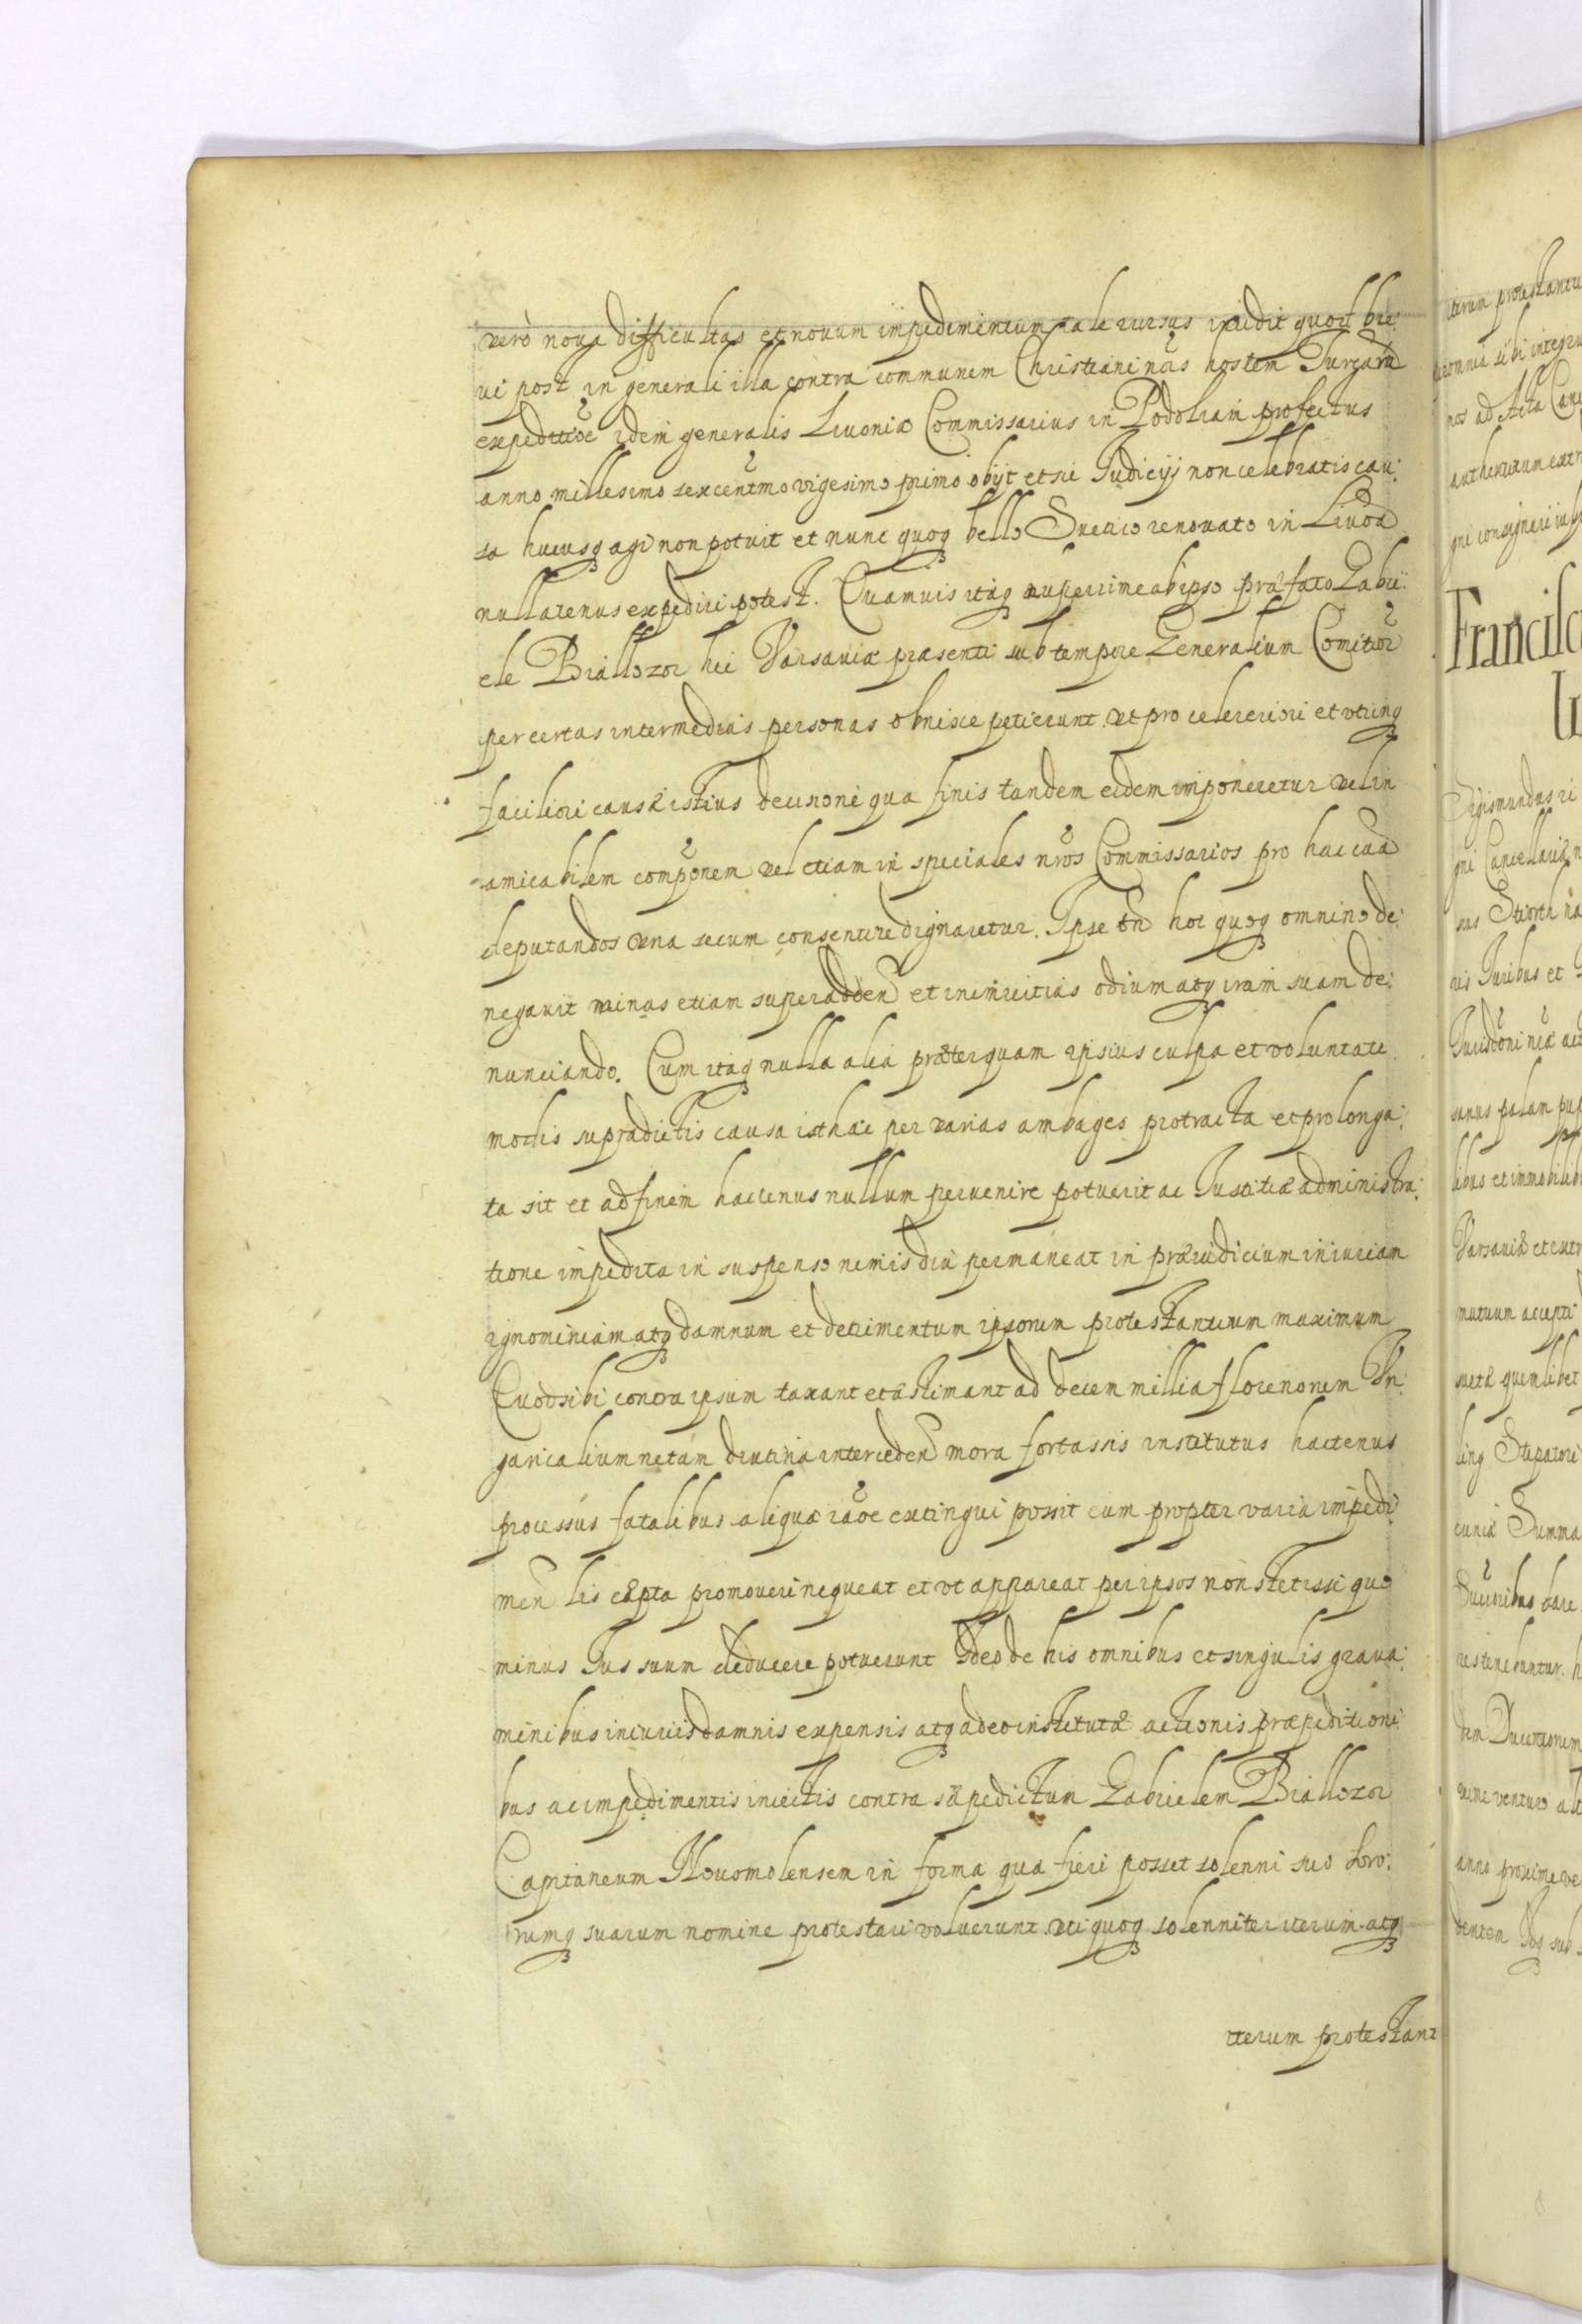 verò noua difficultas et nouum impedimentum tale rursus incidit quod bre:
ui post in generali illa contra communem Christiani nŏis hostem Turcarũ
expeditiŏe idem generalis Liuoniæ Commissarius in Podoliam profectus
anno millesimo sexcentmo vigesimo primo obijt et sic Iudicijs non celebratis cau:
sa hucusq agi non potuit et nunc quoq bello Suetico renouato in Liuŏa
nullatenus expediri potest. Quamuis itaq nuperrime ab ipso præfato Gabri:
ele Biallozor hic Varsauiæ præsenti sub tempore Generalium Comitiorũ
per certas intermedias personas obnixe petierunt vt pro celereriori et vtrinq
faciliori causæ istius decisione qua finis tandem eidem imponeretur vel in
amicabilem componem vel etiam in speciales nros Commissarios pro hac caã
deputandos vna secum consentire dignaretur. Ipse tñ hoc quoq omnino de:
negauit minas etiam superadden et inimicitias odium atq iram suam de:
nunciando. Cum itaq nulla alia præterquam ipsius culpa et voluntate
modis supradictis causa isthæc per varias ambages protracta et prolonga:
ta sit et ad finem hactenus nullum peruenire potuerit ac Iustitiæ administra:
tione impedita in suspenso nimis diu permaneat in præiudicium iniuriam
ignominiam atq damnum et detrimentum ipsorum protestantium maximum
Quod sibi contra ipsum taxant et æstimant ad decem millia florenorum Vn:
garicalium ne tam diutina interceden mora fortassis institutus hactenus
processus fatalibus aliqua raŏe extingui possit cum propter varia impedi:
men lis cæpta promoueri nequeat et vt appareat per ipsos non stetisse quo
minus Ius suum deducere potuerunt Ideo de his omnibus et singulis graua:
minibus iniurijs damnis expensis atq adeo institutæ actionis præpeditioni:
bus ac impedimentis iniectis contra sæpedictum Gabrielem Biallozor
Capitaneum Nouomolensem in forma qua fieri posset solenni suo soro:
rumq suarum nomine protestari voluerunt vti quoq solenniter iterum atq
iterum protestant
iterum protestantu
omnia sibi integra
nos ad Acta Canc
authenticum extr
gni consignari iuss
Francisc
Sigismundus
gni Cancellariæ n
Iuribus et
sanus palam pup
libus et immobilib
Varsauiæ et extr
mutuum accepti
quemlibet
Summa
dare
res tenebuntur. h
dem
venturo alt
anno proxime ve
dentem sub